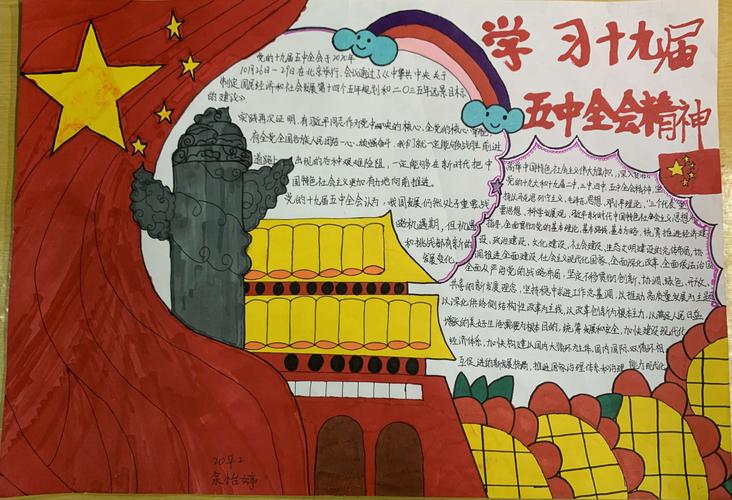 学习十九届
五中全会精神
党的十九届五中全会于2020年
10月26日-29日在北京举行，会议通过了《中共中央关于
制定国民经济和社会发展第十四个五年规划和二〇三五年远景目标
的建议》。
实践再次证明，有习近平同志作为党中央的核心、全党的核心领航，
有全党全国各族人民团结一心、顽强奋斗，我们就一定能够战胜前进
道路上出现的各种艰难险阻，一定能够在新时代把中
国特色社会主义更加有力地向前推进。
党的十九届五中全会认为，我国发展仍然处于重要战
略机遇期，但机遇
和挑战都有新的
发展变化。
高举中国特色社会主义伟大旗帜，深入贯彻
党的十九大和十九届二中、三中、四中、五中全会精神，坚
持以马克思列宁主义、毛泽东思想、邓小平理论、“三个代表”重
要思想、科学发展观、习近平新时代中国特色社会主义思想为
指导，全面贯彻党的基本理论、基本路线、基本方略，统筹推进经济建
设、政治建设、文化建设、社会建设、生态文明建设的总体布局，协
调推进全面建设社会主义现代化国家、全面深化改革、全面依法治国
全面从严治党的战略布局，坚定不移贯彻创新、协调、绿色、开放、
共享的新发展理念，坚持稳中求进工作总基调，以推动高质量发展为主题
以深化供给侧结构性改革为主线，以改革创新为根本动力，以满足人民日益
增长的美好生活需要为根本目的，统筹发展和安全，加快建设现代化
经济体系，加快构建以国内大循环为主体、国内国际双循环相
互促进的新发展格局，推进国家治理体系和治理能力现代化
20年2